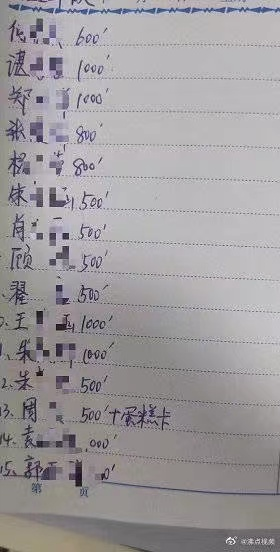 600'
谌 1000'
郑 1000'
张 800'
杨 800'
朱 500'
肖 500'
顾 500'
翟 500'
王 1000'
朱 1000'
12. 朱 500'
13. 周 500'十蛋糕卡
14. 袁 000'
15. 郭 0'
第 页
沸点视频